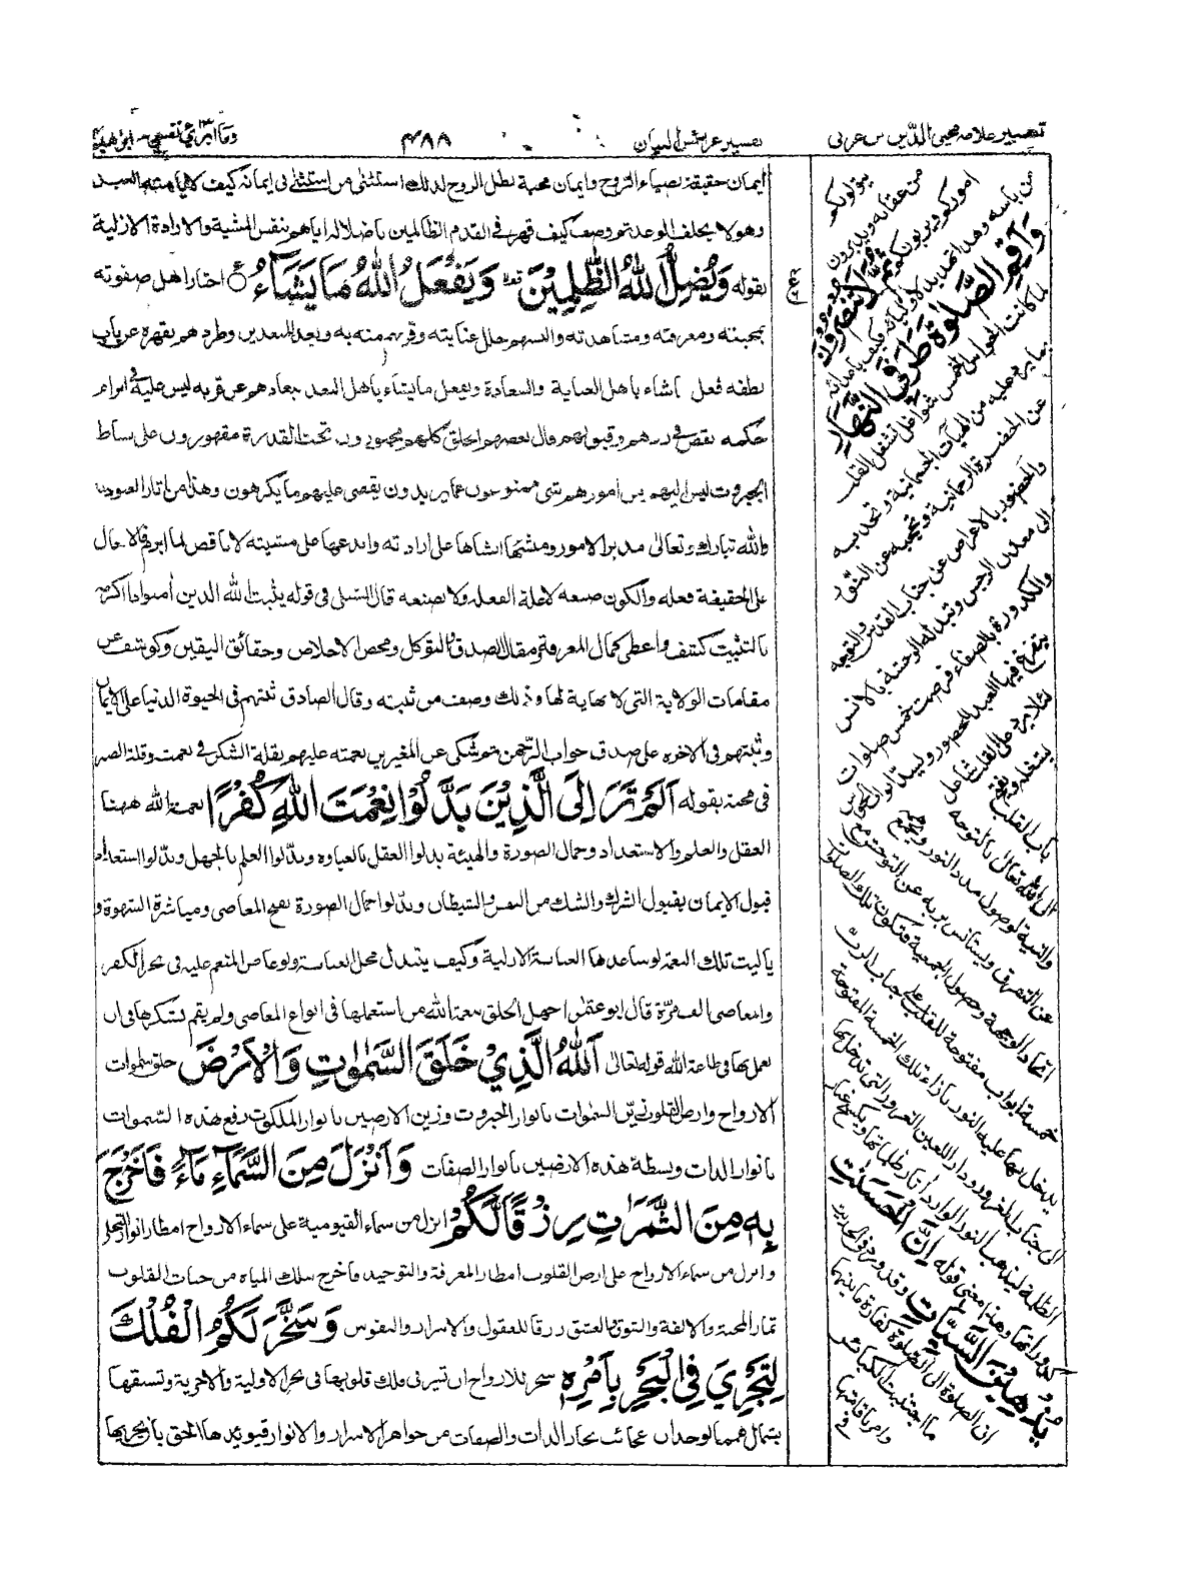 تفسير علامه محيى الدين بن عربى
تفسير عرائس البيان
٤٨٨
وما ابرئ نفسى ابراهيم
ايمان حقيقة بضياء الروح وايمان محبة
وهو لا يخلف الوعد ثم وصف كيف قهر فى القدم الظالمين باضلاله اياهم بنفس المشية والارادة الازلية
بقوله وَيُضِلُّ اللهُ الظّٰلِمِيْنَ وَيَفْعَلُ اللهُ مَا يَشَآءُ اختار اهل صفوته
بمحبته ومعرفته ومشاهدته
لطفه فعل ما شاء باهل العناية والسعادة ويفعل ما يشاء باهل البعد بعادهم عن قربه ليس عليه فى ابرام
حكمه نقص تحت القدرة مقهورون على بساط
الجبروت ليس اليهم من امورهم شئ ممنوعون عما يريدون يقضى عليهم ما يكرهون وهذا من اثار العبودية
والله تبارك وتعالى مدبر الامور ومنشئها انشاها على ارادته وابدعها على مشيته لا ناقض لما ابرم
على الحقيقة فعله والكون صنعه لا علة لفعله ولا لصنعه قال الشبلى فى قوله يثبت الله الذين امنوا
بالتثبيت كشف واعطى كمال المعرفة ومقال الصدق والتوكل ومحض الاخلاص وحقائق اليقين
مقامات الولاية التى لا نهاية لها وذلك وصف من ثبته وقال الصادق ثبتهم فى الحيوة الدنيا على الايمان
وثبتهم فى الاخرة على صدق جواب الرحمن ثم شكى عن المغيرين نعمته عليهم بقلة الشكر فى نعمته وقلة الصبر
فى محنة بقوله اَلَمْ تَرَ اِلَى الَّذِيْنَ بَدَّلُوْا نِعْمَتَ اللهِ كُفْرًا نعمة الله ههنا
العقل والعلم والاستعداد وجمال الصورة والهيئة بدلوا العقل بالغباوة وبدلوا العلم بالجهل وبدلوا استعداد
قبول الايمان بقبول الشرك والشك من النفس والشيطان وبدلوا جمال الصورة بقبح المعاصى ومباشرة الشهوة و
ياليت تلك النعم لو ساعدها العناية الازلية وكيف يتبدل محل العناية ولو غاص المنعم عليه فى بحر الكفر
والمعاصى الف مرة قال ابو عثمان اجهل الخلق بنعمة الله من استعملها فى انواع المعاصى ولم يقم بشكرها فى ان
يعمل بها فى طاعة الله قوله تعالى اَللهُ الَّذِيْ خَلَقَ السَّمٰوٰتِ وَالْاَرْضَ خلق سموات
الارواح وارض القلوب زين السموات بانوار الجبروت وزين الارضين بانوار الملكوت رفع هذه السموات
بانوار الذات وبسط هذه الارضين بانوار الصفات وَاَنْزَلَ مِنَ السَّمَآءِ مَآءً فَاَخْرَجَ
بِهٖ مِنَ الثَّمَرٰتِ رِزْقًا لَّكُمْ انزل من سماء القيومية على سماء الارواح امطار انوار التجلى
وانزل من سماء الارواح على ارض القلوب امطار المعرفة والتوحيد فاخرج بتلك المياه من حبات القلوب
ثمار المحبة والالفة والشوق والعشق رزقا للعقول والاسرار والنفوس وَسَخَّرَ لَكُمُ الْفُلْكَ
لِتَجْرِيَ فِى الْبَحْرِ بِاَمْرِهٖ سخر للارواح ان تسير فى فلك قلوبها فى بحر الاولية والاخرية وتسقيها
عجائب بحار الذات والصفات من جواهر الاسرار والانوار
من باسه وهذا تهديد لاوليائه
ثُمَّ لَا تُنْصَرُوْنَ
وَاَقِمِ الصَّلٰوةَ طَرَفَىِ النَّهَارِ
لما كانت الحواس الخمس شواغل تشغل القلب
بما يرد عليه من الهيآت الجسمانية وتجذبه
عن الحضرة الرحمانية وتحجبه عن النور
والحضور بالاعراض عن جناب القدس والتوجه
الى معدن الرجس وتبدله الوحشة بالانس
والكدورة بالصفاء فرضت خمس صلوات
يتفرغ فيها العبد للحضور ويسد ابواب الحواس
لئلا يرد على القلب شاغل
يشغله ويفتح
باب القلب
الى الله تعالى بالتوجه
والنية لوصول مدد النور ويجمع
عن التفرق ويستانس بربه عن التوحش مع
اتحاد الوجهة وحصول الجمعية فتكون تلك الصلوات
خمسة ابواب مفتوحة للقلب على جناب الرب
يدخل بها عليه النور بازاء تلك الخمسة المفتوحة
الى جناب الغرور ودار اللعين الغرور التى تدخل بها
الظلمة ليذهب النور الوارد اثار ظلماتها ويكسح غبار
كدوراتها وهذا معنى قوله اِنَّ الْحَسَنٰتِ
يُذْهِبْنَ السَّيِّاٰتِ وقد ورد فى الحديث
ان الصلوة الى الصلوة كفارة ما بينهما
ما اجتنبت الكبائر
وامر باقامتها
فى